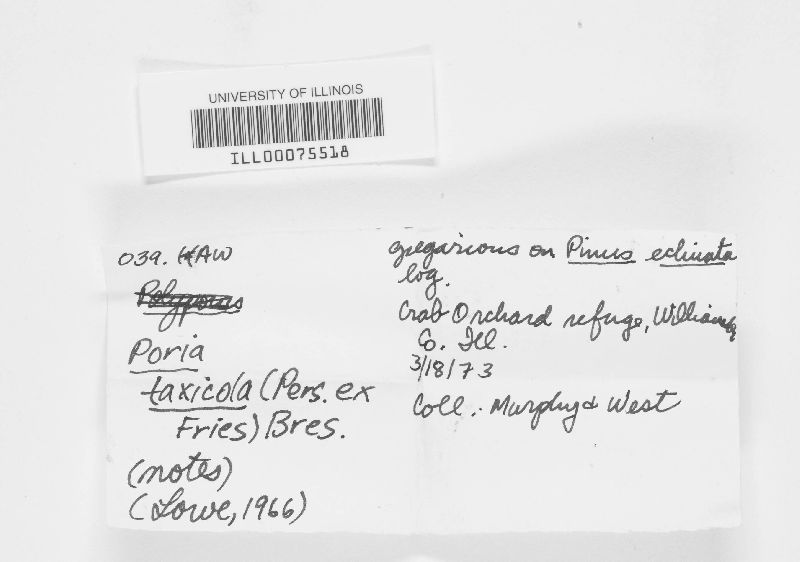 UNIVERSITY OF ILLINOIS
ILL00075518
039. HAW
Polyporus
Poria
taxicola (Pers. ex
Fries) Bres.
(notes)
(Lowe, 1966)
gregarious on Pinus echinata
log.
Crab Orchard refuge, Williamson
Co. Ill.
3/18/73
Coll.: Murphy & West